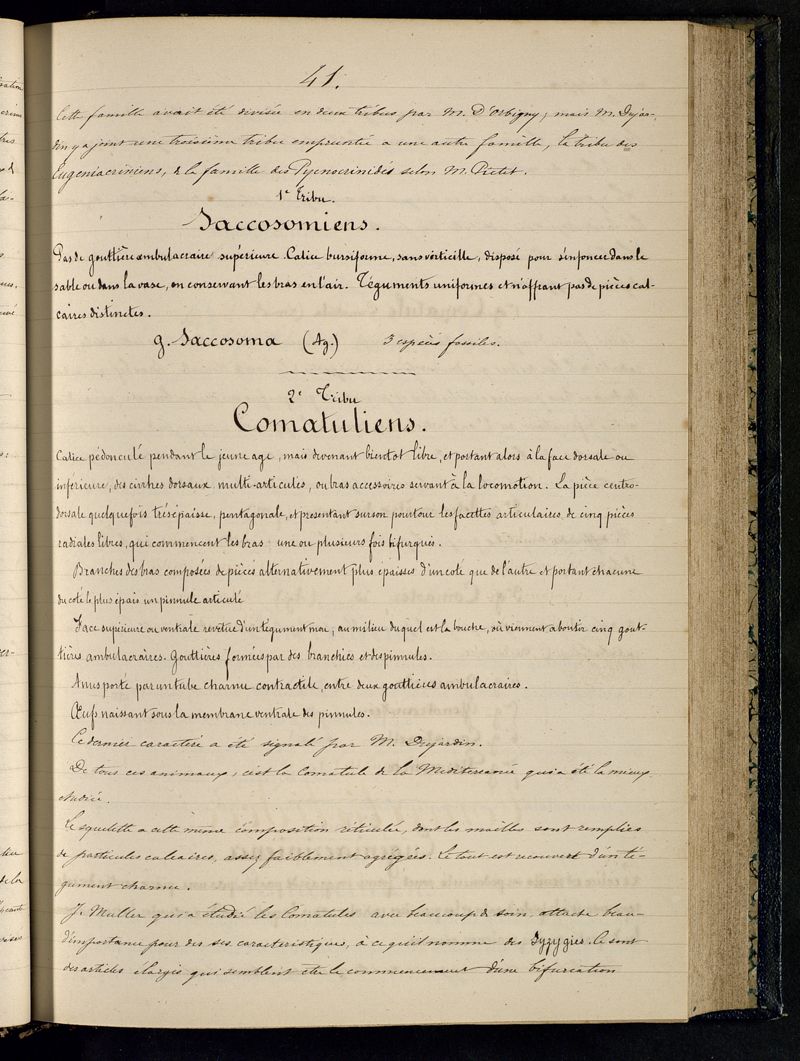 41.
Cette famille avait été divisée en deux tribus par M. D'Orbigny, mais M. Dujar-
din y a joint une troisieme tribu empruntée a une autre famille, la tribu des
Eugeniacriniens, de la famille des Pycnocrinidés selon M. Pictet.
1e Tribu.
Saccosomiens.
Pas de gouttière ambulacraire supérieure. Calice bursiforme, sans verticille, disposé pour s'enfoncer dans le
sable ou dans la vase, en conservant les bras en l'air. Téguments uniformes et n'offrant pas de pièces cal-
caires distinctes.
g. Saccosoma (Ag.) 3 espèces fossiles.
2e Tribu
Comatuliens.
Calice pédonculé pendant le jeune age, mais devenant bientot libre, et portant alors à la face dorsale ou
inférieure, des cirrhes dorsaux multi-articulés, ou bras accessoires servant à la locomotion. La pièce centro-
dorsale quelquefois très épaisse, pentagonale, et presentant sur son pourtour les facettes articulaires de cinq pièces
radiales libres, qui commencent les bras une ou plusieurs fois bifurqués.
Branches des bras composées de pièces alternativement plus épaisses d'un coté que de l'autre et portant chacune
du coté le plus épais un pinnule articulé
Face supérieure ou ventrale revêtue d'un tégument mou, au milieu duquel est la bouche, où viennent aboutir cinq gout-
tières ambulacraires. Gouttières formées par des branchies et des pinnules.
Anus porté par un tube charnu contractile, entre deux gouttières ambulacraires.
Œufs naissant sous la membrane ventrale des pinnules.
Ce dernier caractère a été signalé par M. Dujardin.
De tous ces animaux, c'est la Comatule de la Mediterranée qui a été la mieux
étudiée.
Le squelette a cette même composition réticulée, dont les mailles sont remplies
de particules calcaires, assez faiblement agrégées. Le tout est recouvert d'un té-
gument charnu.
J. Muller qui a étudié les Comatules avec beaucoup de soin, attache beau-
d'importance pour des ses caracteristiques, à ce qu'il nomme des Syzygies. Ce sont
des articles élargis qui semblent être le commencement d'une bifurcation